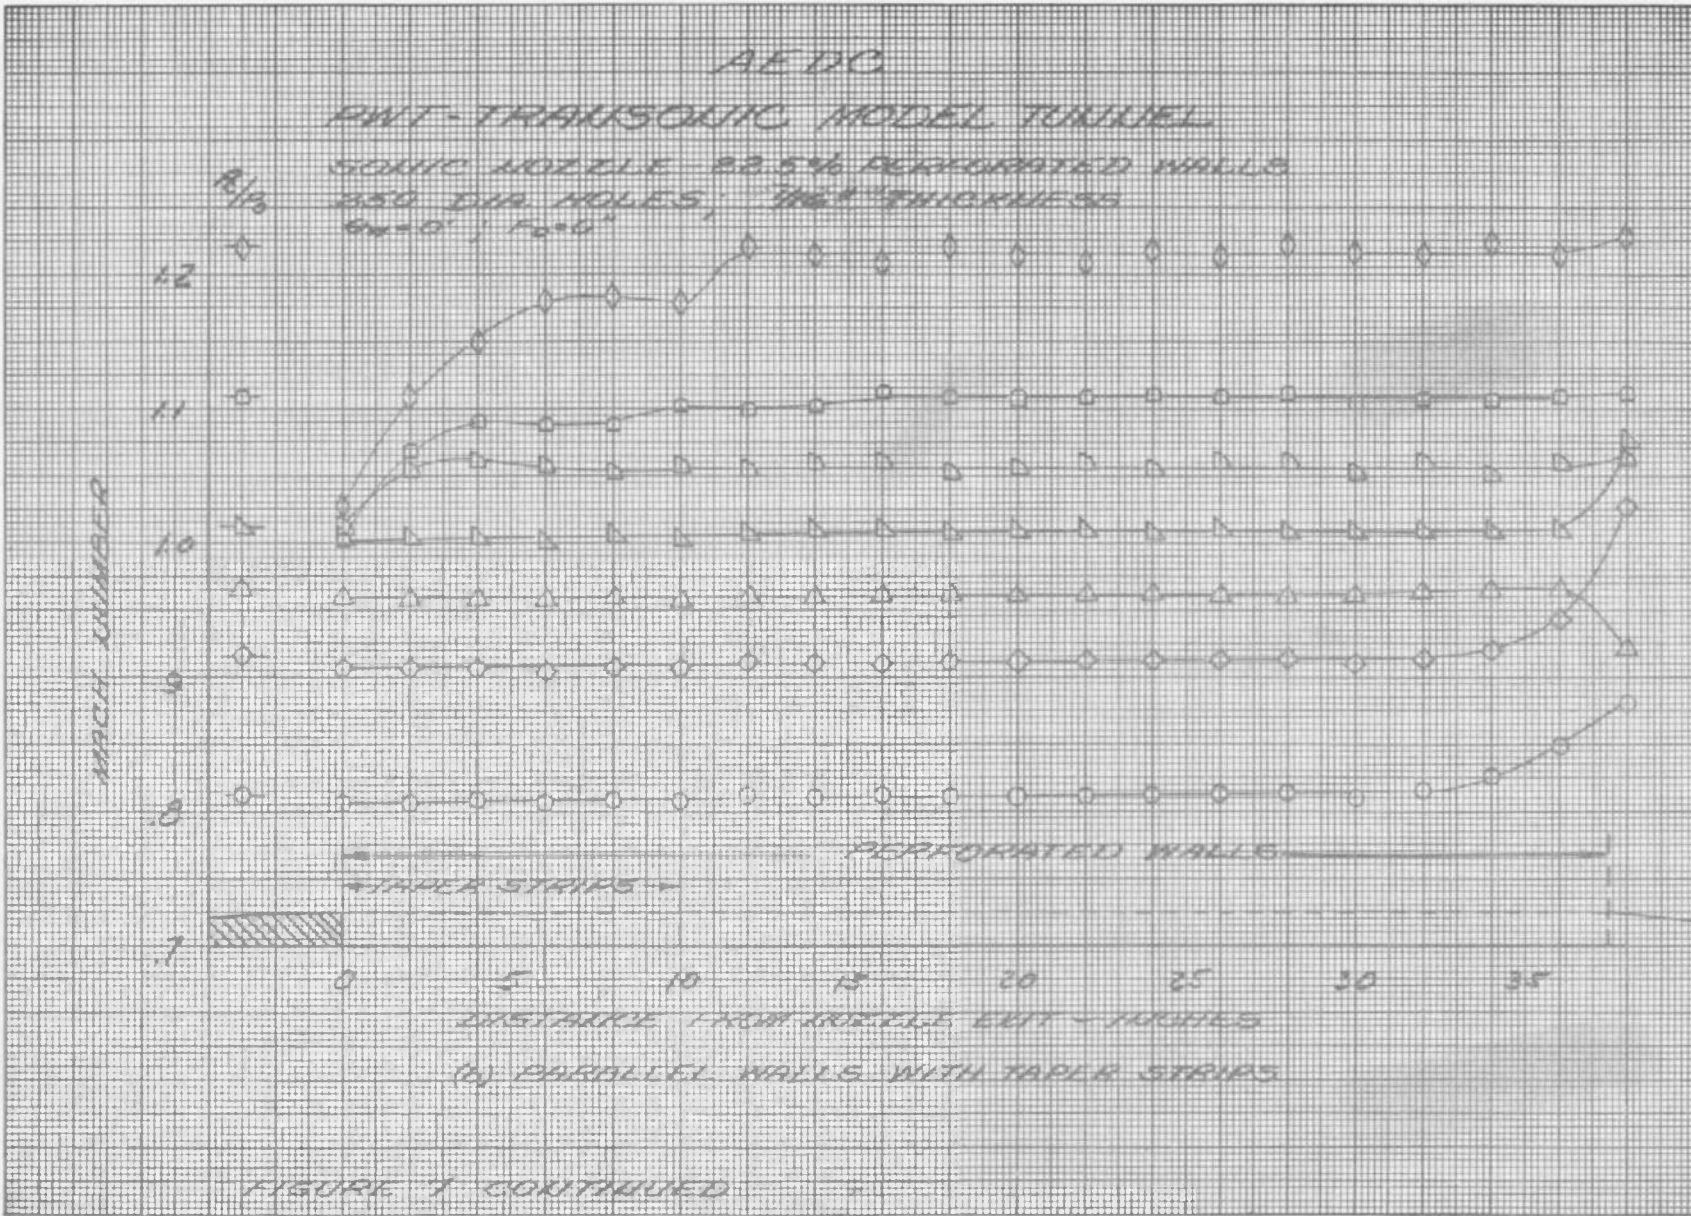 AEDC
PWT-TRANSONIC MODEL TUNNEL
SONIC NOZZLE - 22.5% PERFORATED WALLS
.250 DIA. HOLES; 7/16" THICKNESS
1.2
1.1
1.0
.9
.8
.7
MACH NUMBER
PERFORATED WALLS
TAPER STRIPS
0 5 10 15 20 25 30 35
DISTANCE FROM NOZZLE EXIT - INCHES
PARALLEL WALLS WITH TAPER STRIPS
FIGURE 7 CONTINUED